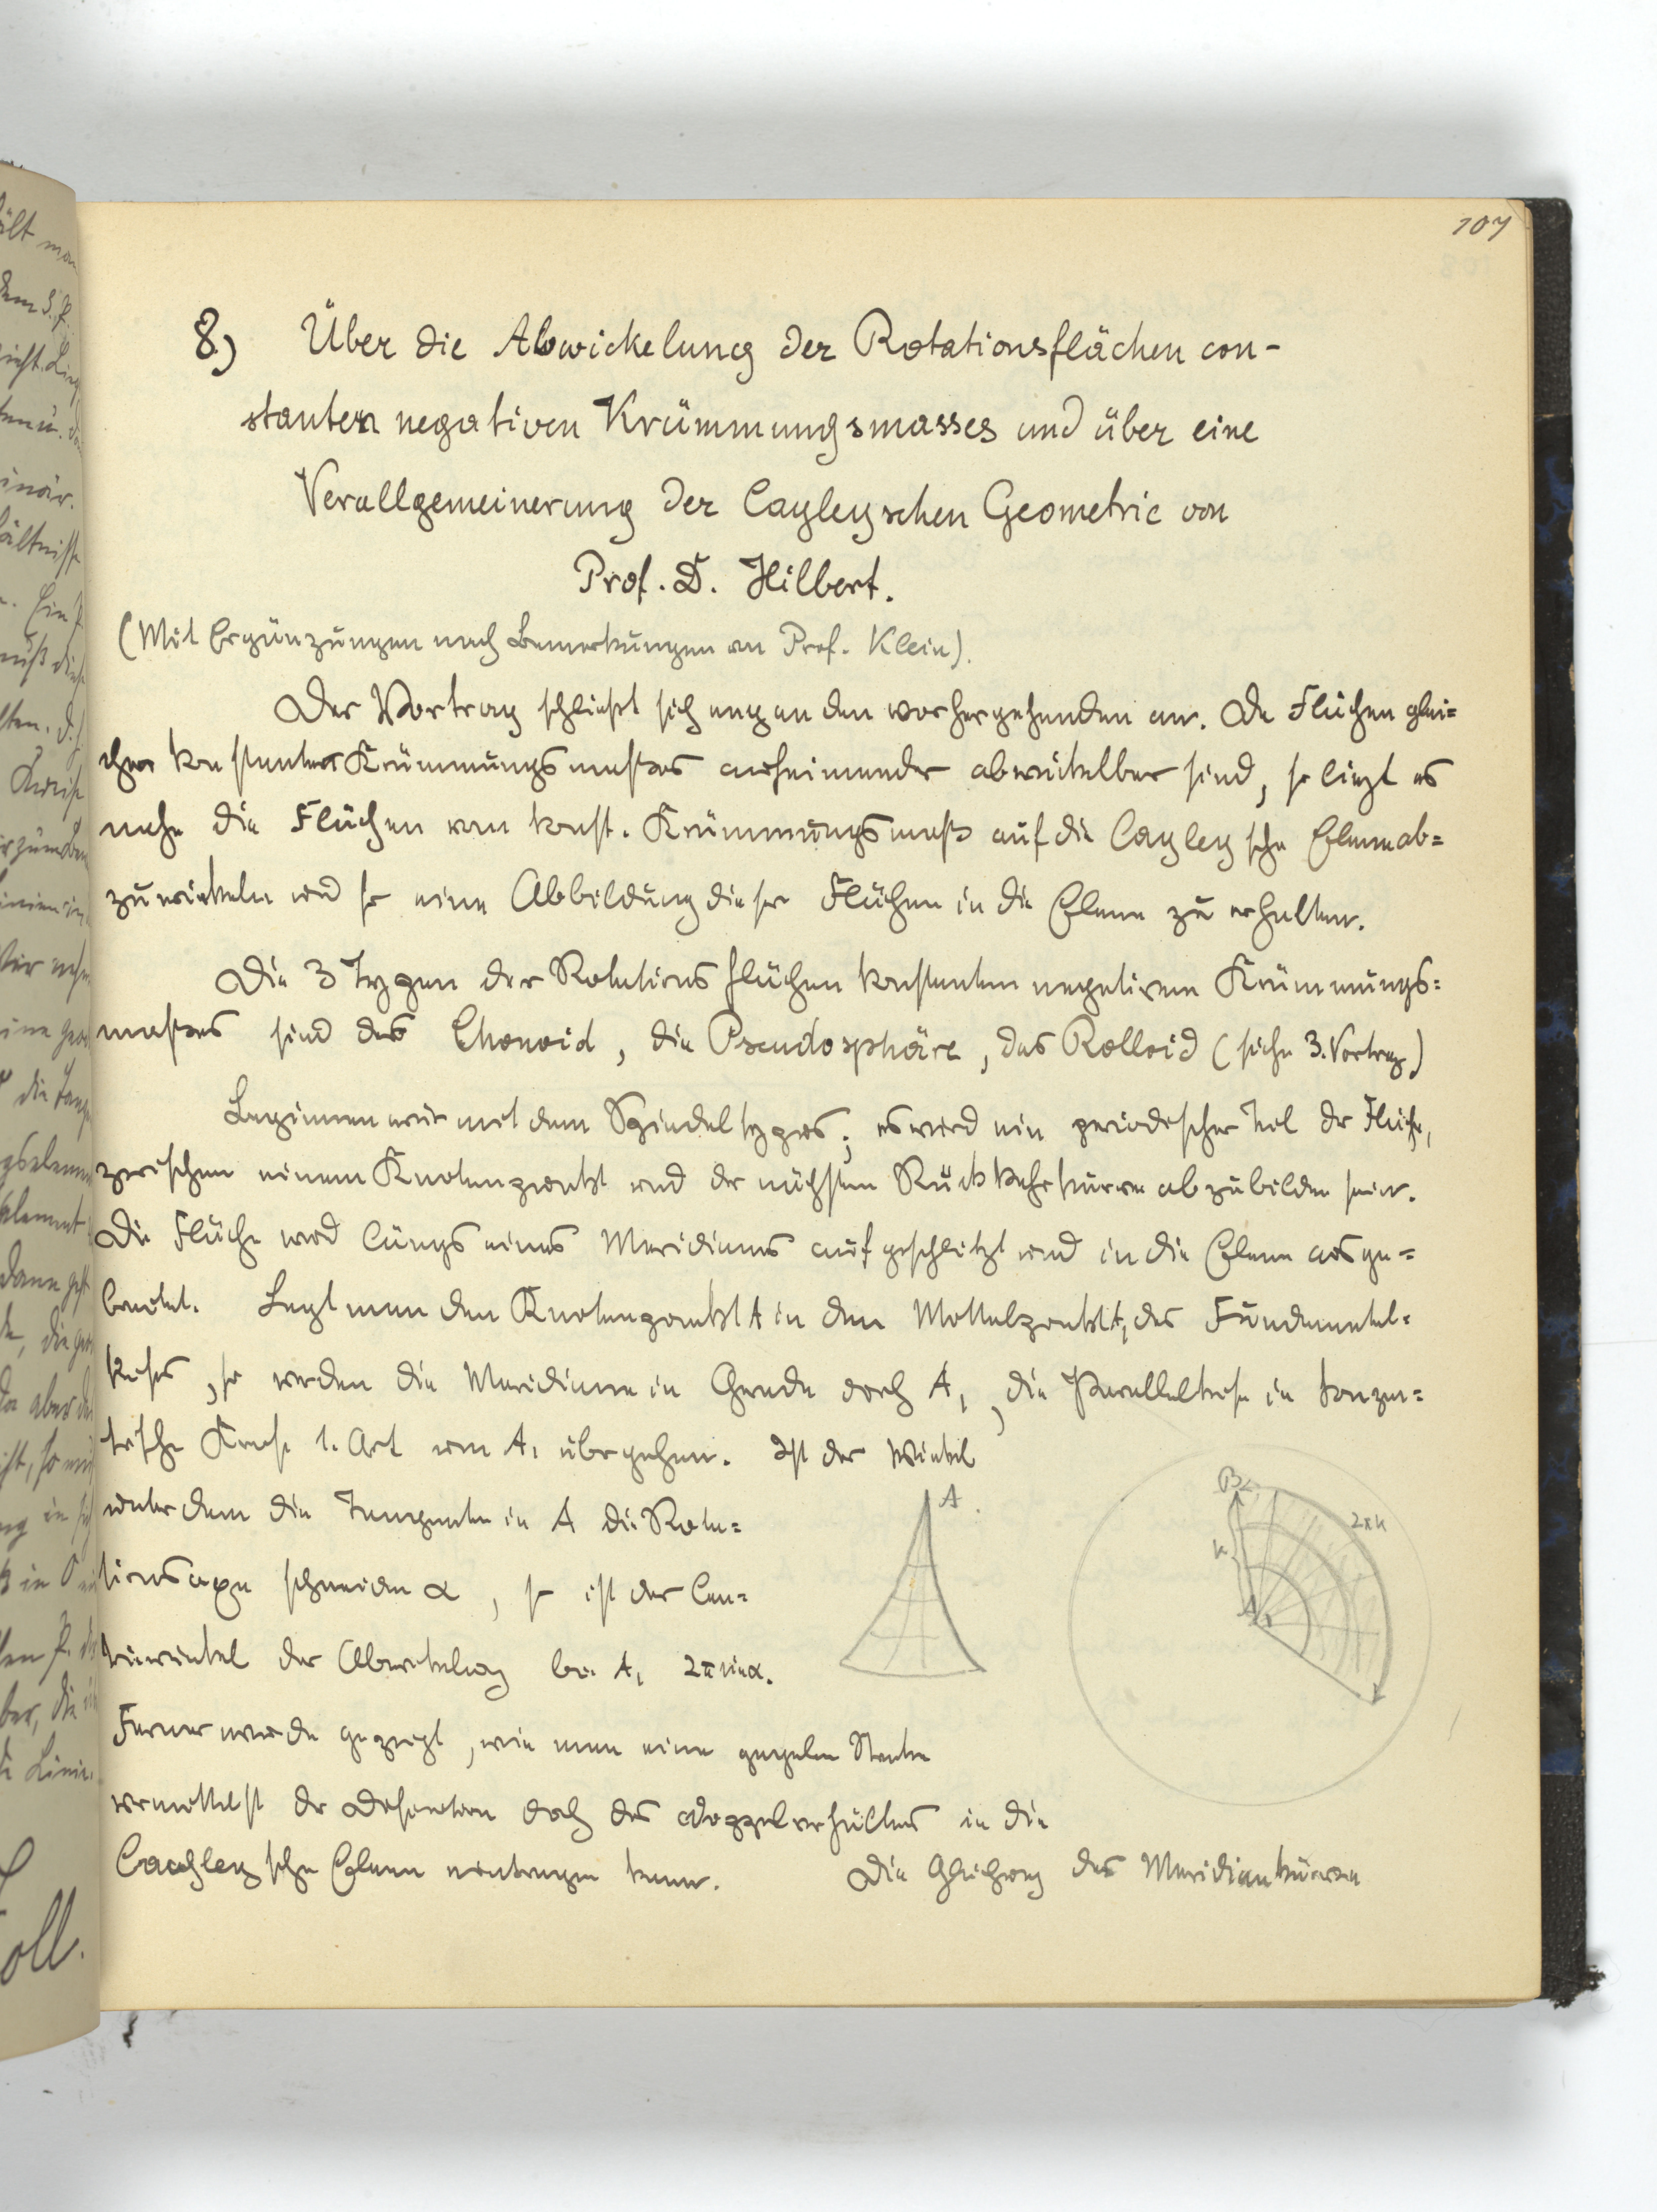 107
8) Über die Abwickelung der Rotationsflächen con-
stanten negativen Krümmungsmasses und über eine
Verallgemeinerung der Cayleyschen Geometrie von
Prof. D. Hilbert.
(Mit Ergänzungen nach Bemerkungen von Prof. Klein).
Der Vortrag schließt sich eng an den vorhergehenden an. Da Flächen glei=
cher konstanter Krümmungsmasses aufeinander abwickelbar sind, so liegt es
nahe die Flächen von konst. Krümmungsmaß auf die Cayleysche Ebene ab=
zuwickeln und so eine Abbildung dieser Flächen in die Ebene zu erhalten.
Die 3 Typen der Rotationsflächen konstanten negativen Krümmungs=
masses sind das Chonoid, die Pseudosphäre, das Rolloid (siehe 3. Vortrag)
Beginnen wir mit dem Spindeltypus; es wird ein periodischer Teil der Fläche,
zwischen einem Knotenpunkt und der nächsten Rückkehrkurve abzubilden sein.
Die Fläche wird längs eines Meridians aufgeschlitzt und in die Ebene ausge=
breitet. Legt man den Knotenpunkt A in den Mittelpunkt A, des Fundamental=
kreises, so werden die Meridiane in Gerade durch A, , die Parallelkreise in konzen=
trische Kreise 1. Art um A, übergehen. Ist der Winkel
unter dem die Tangente in A die Rota=
tionsaxe schneiden α, so ist der Cen=
triwinkel der Abwickelung bei A, 2π sin α.
Ferner wurde gezeigt, wie man eine gegebene Strecke
vermittelst der Definition durch das Doppelverhältnis in die
Cayleysche Ebene eintragen kann. Die Gleichung der Meridiankurven
A
B
2πh
A,